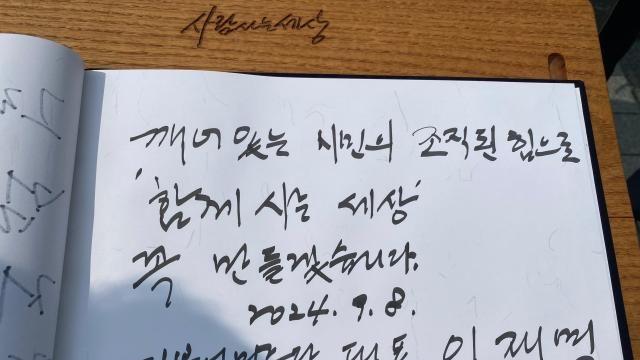 사람사는세상
깨어있는 시민의 조직된 힘으로
'함께 사는 세상'
꼭 만들겠습니다.
2024. 9. 8.
대표 이재명